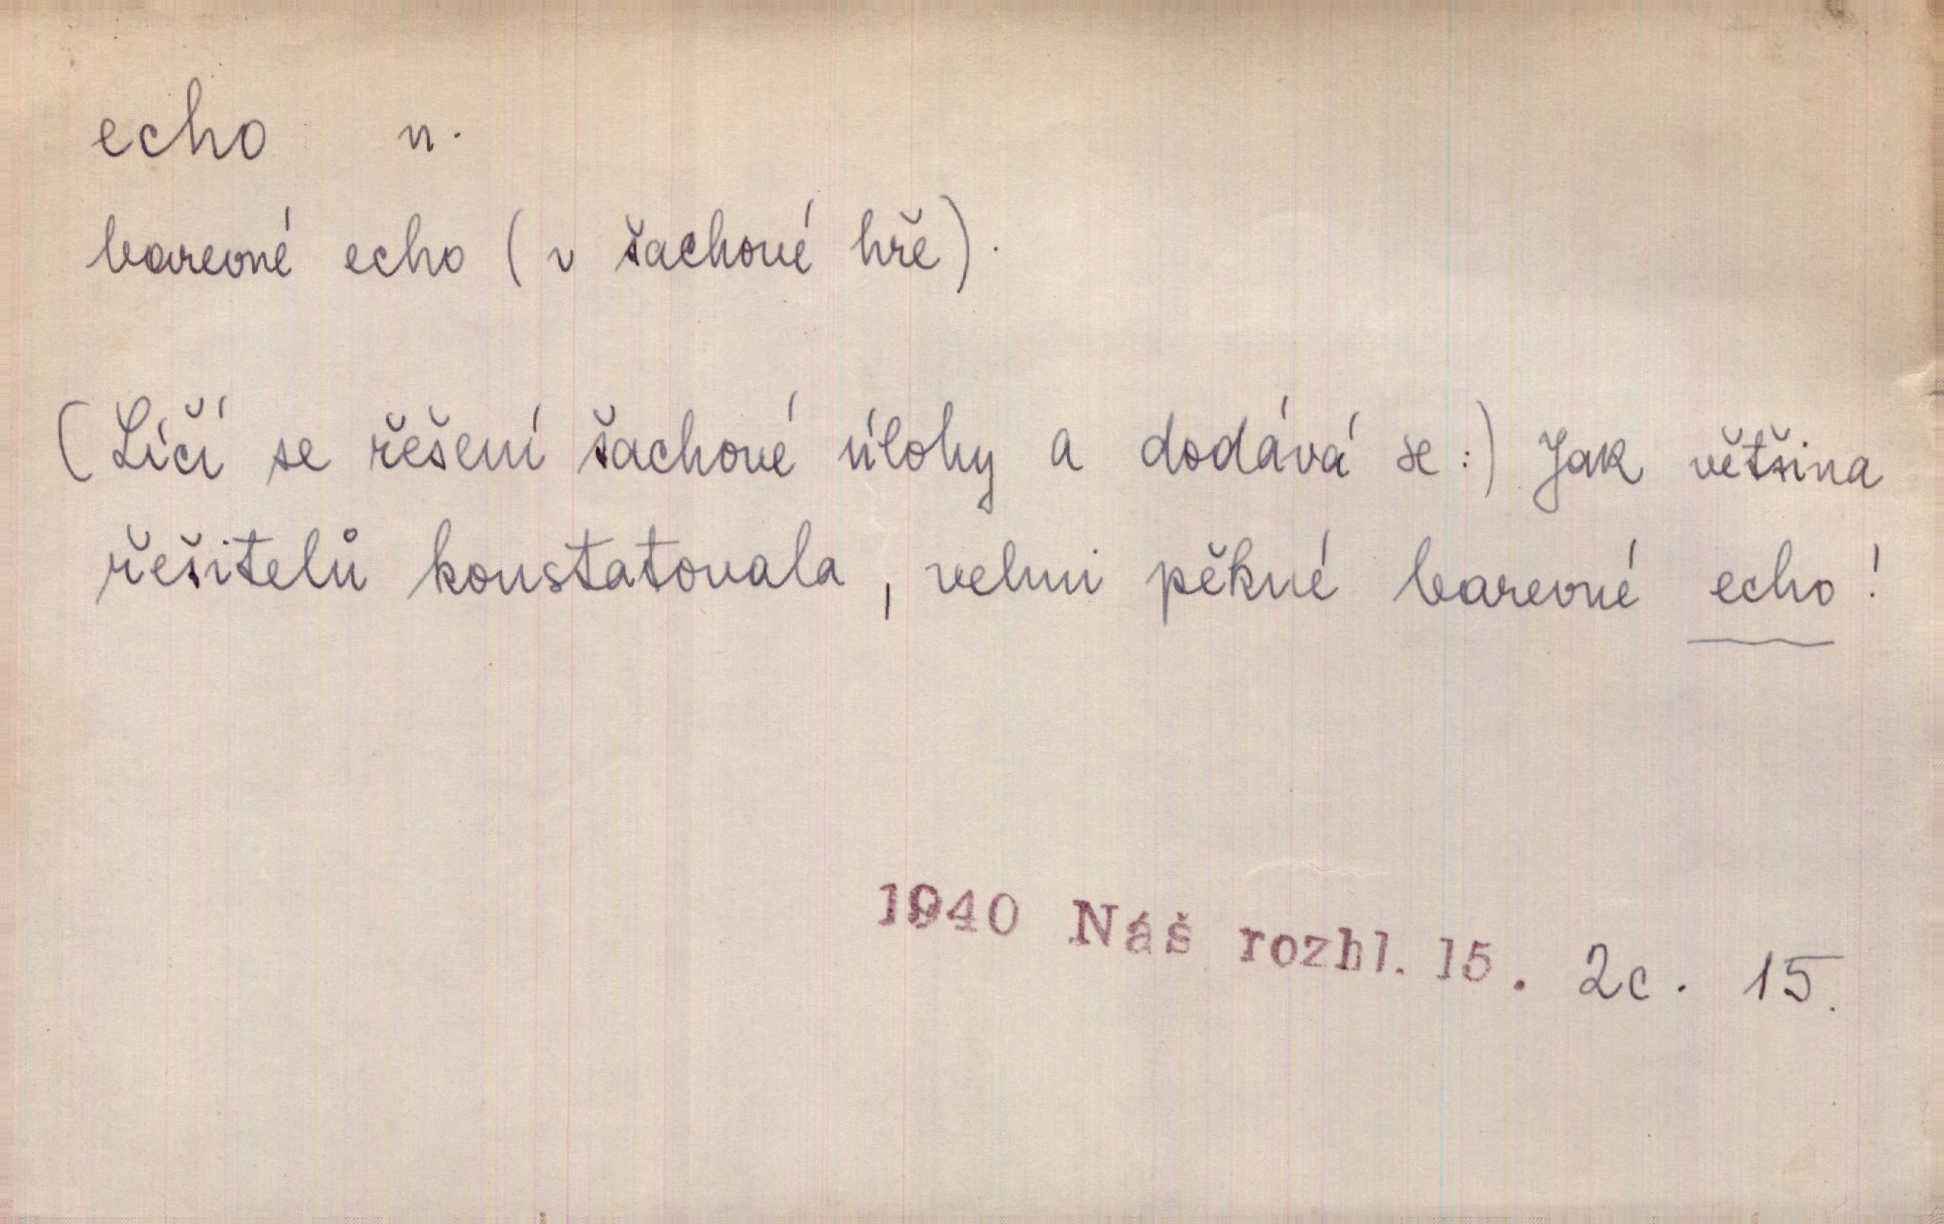 echo n.
barevné echo (v šachové hře).
(Líčí se řešení šachové úlohy a dodává se:) Jak většina
řešitelů konstatovala, velmi pěkné barevné echo!
1940 Náš rozhl. 15. 2c. 15.